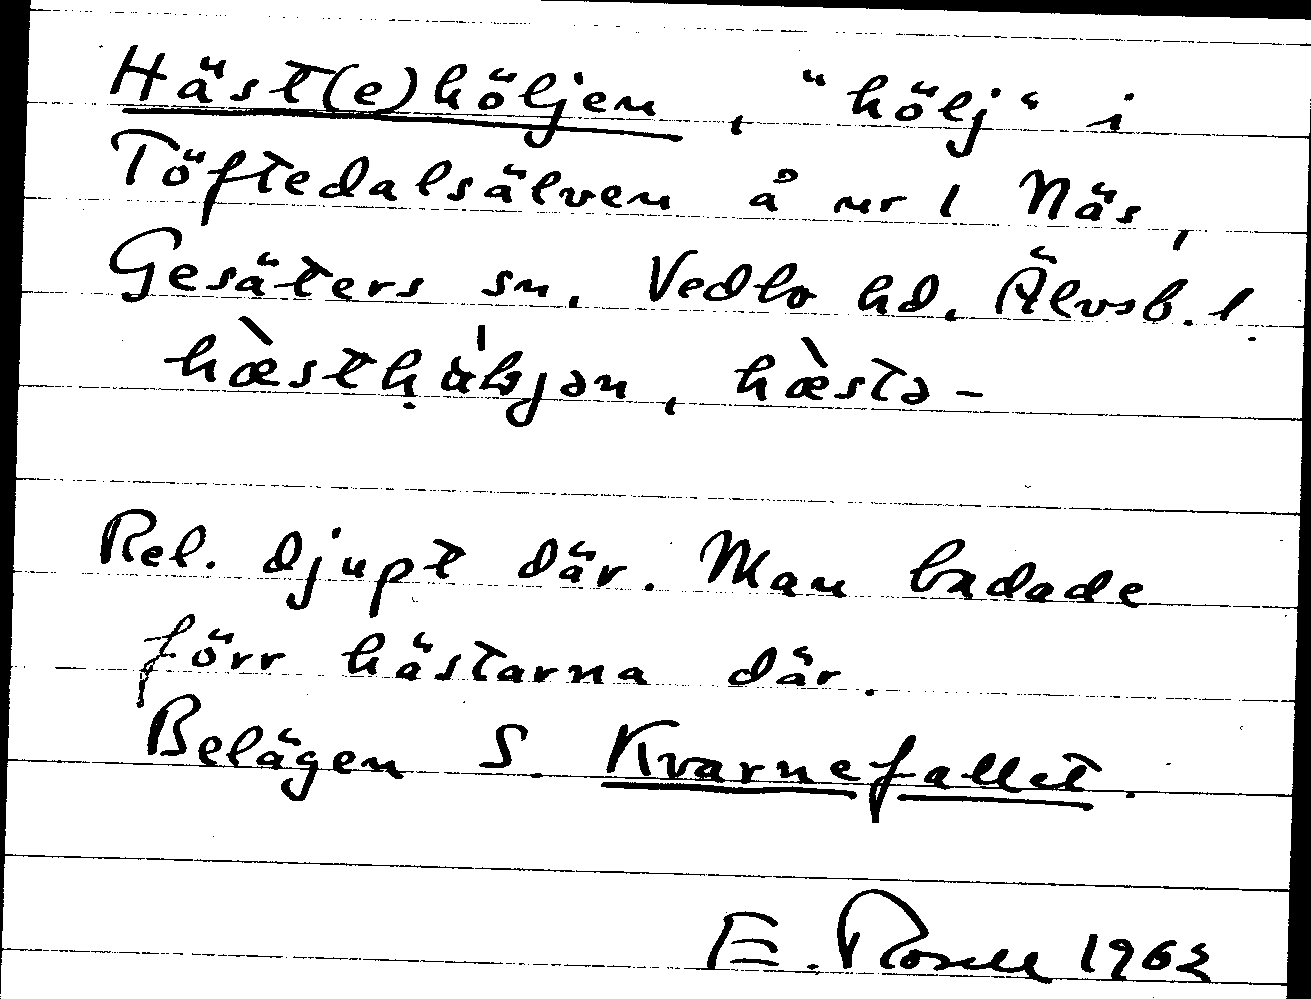 Häst(e)höljen, "hölj" i
Töftedalsälven å nr 1 Näs,
Gesäters sn. Vedbo hd. Älvsb. l.
hæ̀stḥ, hæ̀stə-
Rel. djupt där. Man badade
förr hästarna där.
Belägen S. Kvarnefallet.
E. Rosell 1962